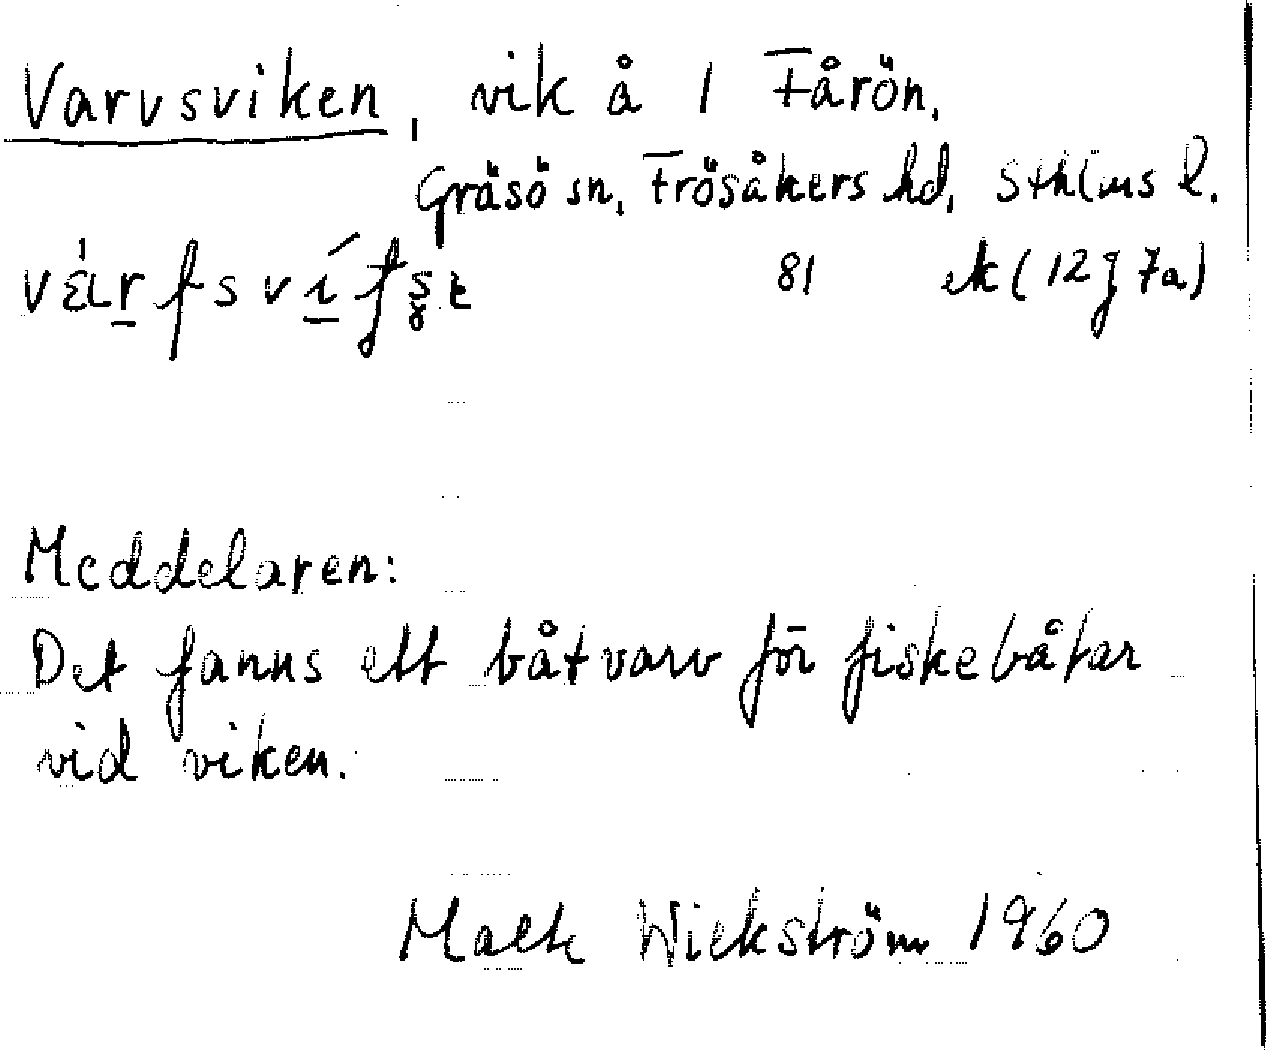 Varvsviken, vik å 1 Fårön,
Gräsö sn, Frösåkers hd, Sthlms l.
81 ek (12 J 7a)
Meddelaren:
Det fanns ett båtvarv för fiskebåtar
vid viken.
Maete Wickström 1960